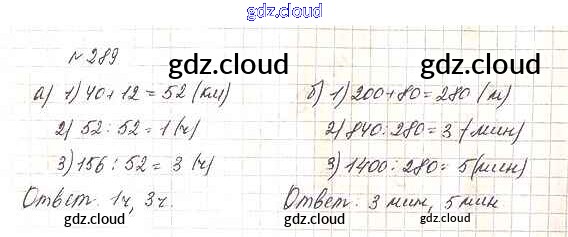 gdz.cloud
№ 289
gdz.cloud gdz.cloud
а) 1) 40+12=52 (км)
2) 52:52=1 (ч)
3) 156:52=3 (ч)
Ответ. 1ч, 3ч.
б) 1) 200+80=280 (м)
2) 840:280=3 (мин)
3) 1400:280=5 (мин)
Ответ. 3 мин, 5 мин
gdz.cloud gdz.cloud